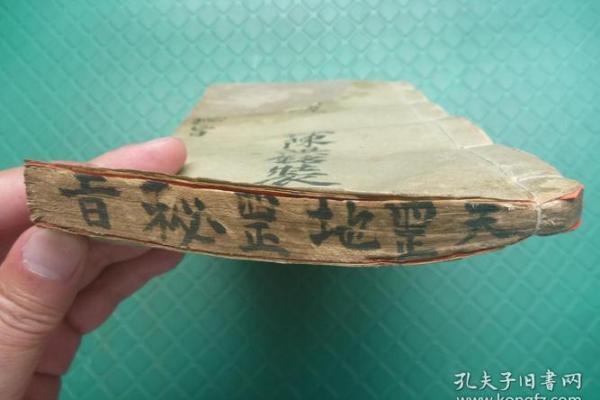 天罡地罡秘旨
孔夫子旧書网
www.kongfz.com